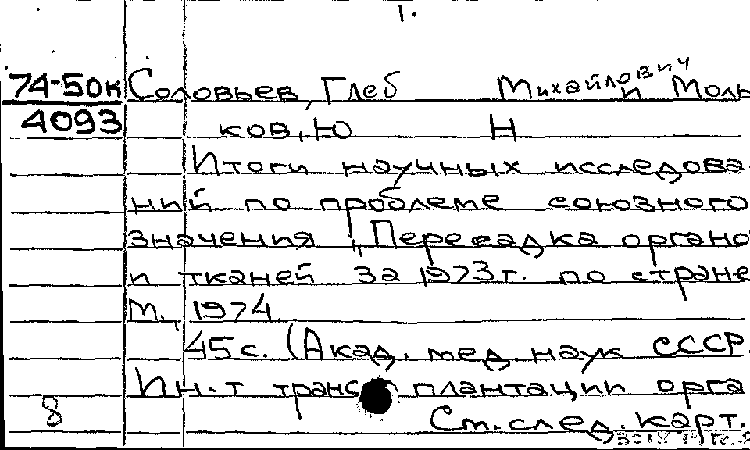 1.
74-50к Соловьев, Глеб Михайлович и Моль
4093 ков, Ю Н
Итоги научных исследова
ний по проблеме союзного
значения „Пересадка органо
и тканей за 1973г. по стране
М., 1974
45с. (Акад. мед. наук СССР.
Ин-т трансплантации орга
8 Ст. след. карт.